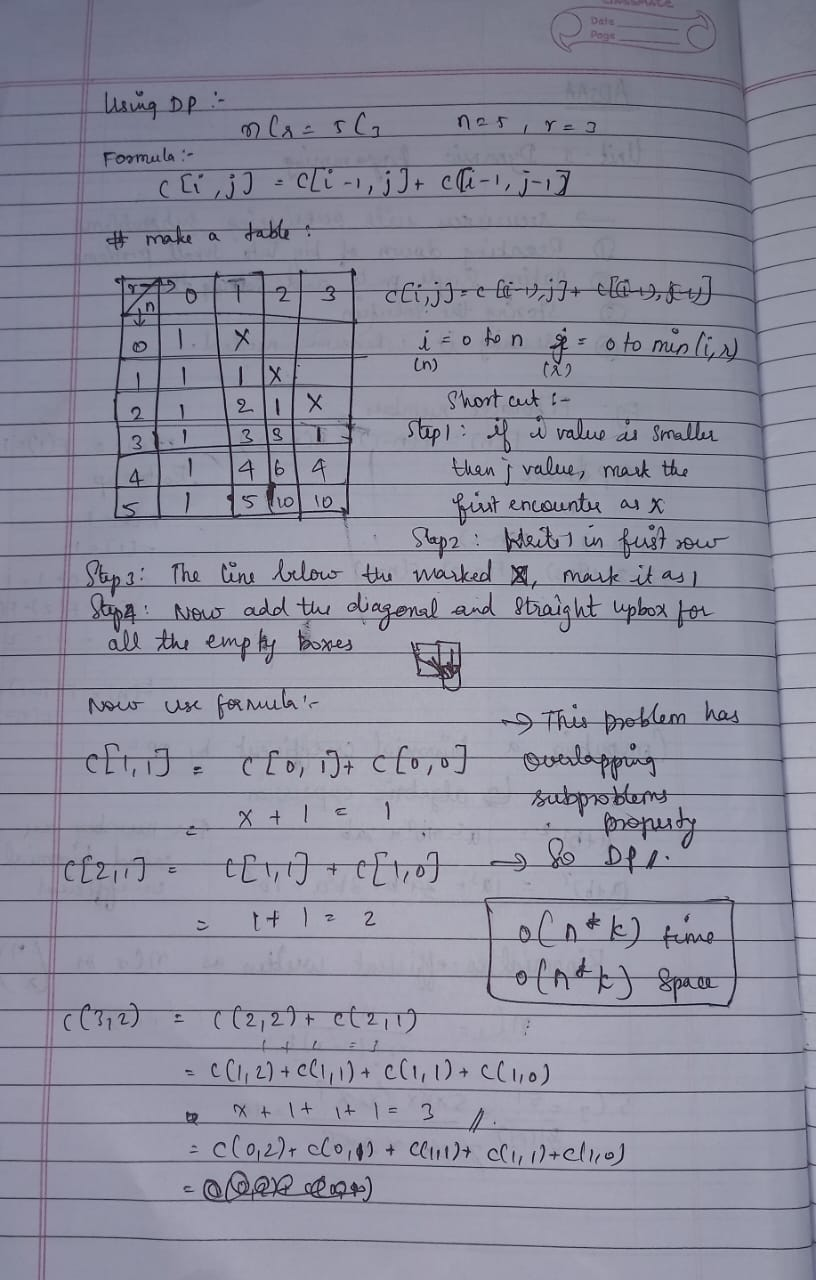 CLASSMATE
Date
Page
Using DP :-
nCr = 5C3 n=5, r=3
Formula :-
C[i,j] = C[i-1, j] + C[i-1, j-1]
# make a table :
r→ 0 1 2 3
n↓
0 1 X
1 1 1 X
2 1 2 1 X
3 1 3 3 1
4 1 4 6 4
5 1 5 10 10
C[i,j] = C[(i-1),j] + C[(i-1), (j-1)]
i = 0 to n j = 0 to min(i,r)
(n) (r)
Short cut :-
Step1 : if i value is smaller
than j value, mark the
first encounter as X
Step2 : Write 1 in first row
Step 3: The line below the marked X, mark it as 1
Step 4: Now add the diagonal and straight upbox for
all the empty boxes
Now use formula :-
→ This problem has
overlapping
subproblems
property
→ So DP //.
C[1,1] = C[0,1] + C[0,0]
= X + 1 = 1
C[2,1] = C[1,1] + C[1,0]
= 1 + 1 = 2
O(n*k) time
O(n*k) space
C(3,2) = C(2,2) + C(2,1)
= C(1,2) + C(1,1) + C(1,1) + C(1,0)
X + 1 + 1 + 1 = 3 //.
= C(0,2) + C(0,1) + C(1,1) + C(1,1) + C(1,0)